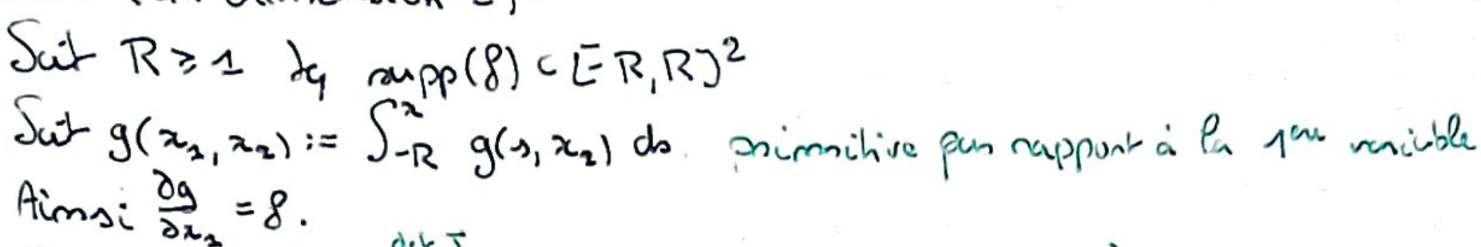 Soit R ≥ 1 tq supp(f) ⊂ [-R, R]²
Soit g(x₁, x₂) := ∫_{-R}^{x} g(s, x₂) ds. primitive par rapport à la 1ère variable
Ainsi ∂g/∂x₁ = f.